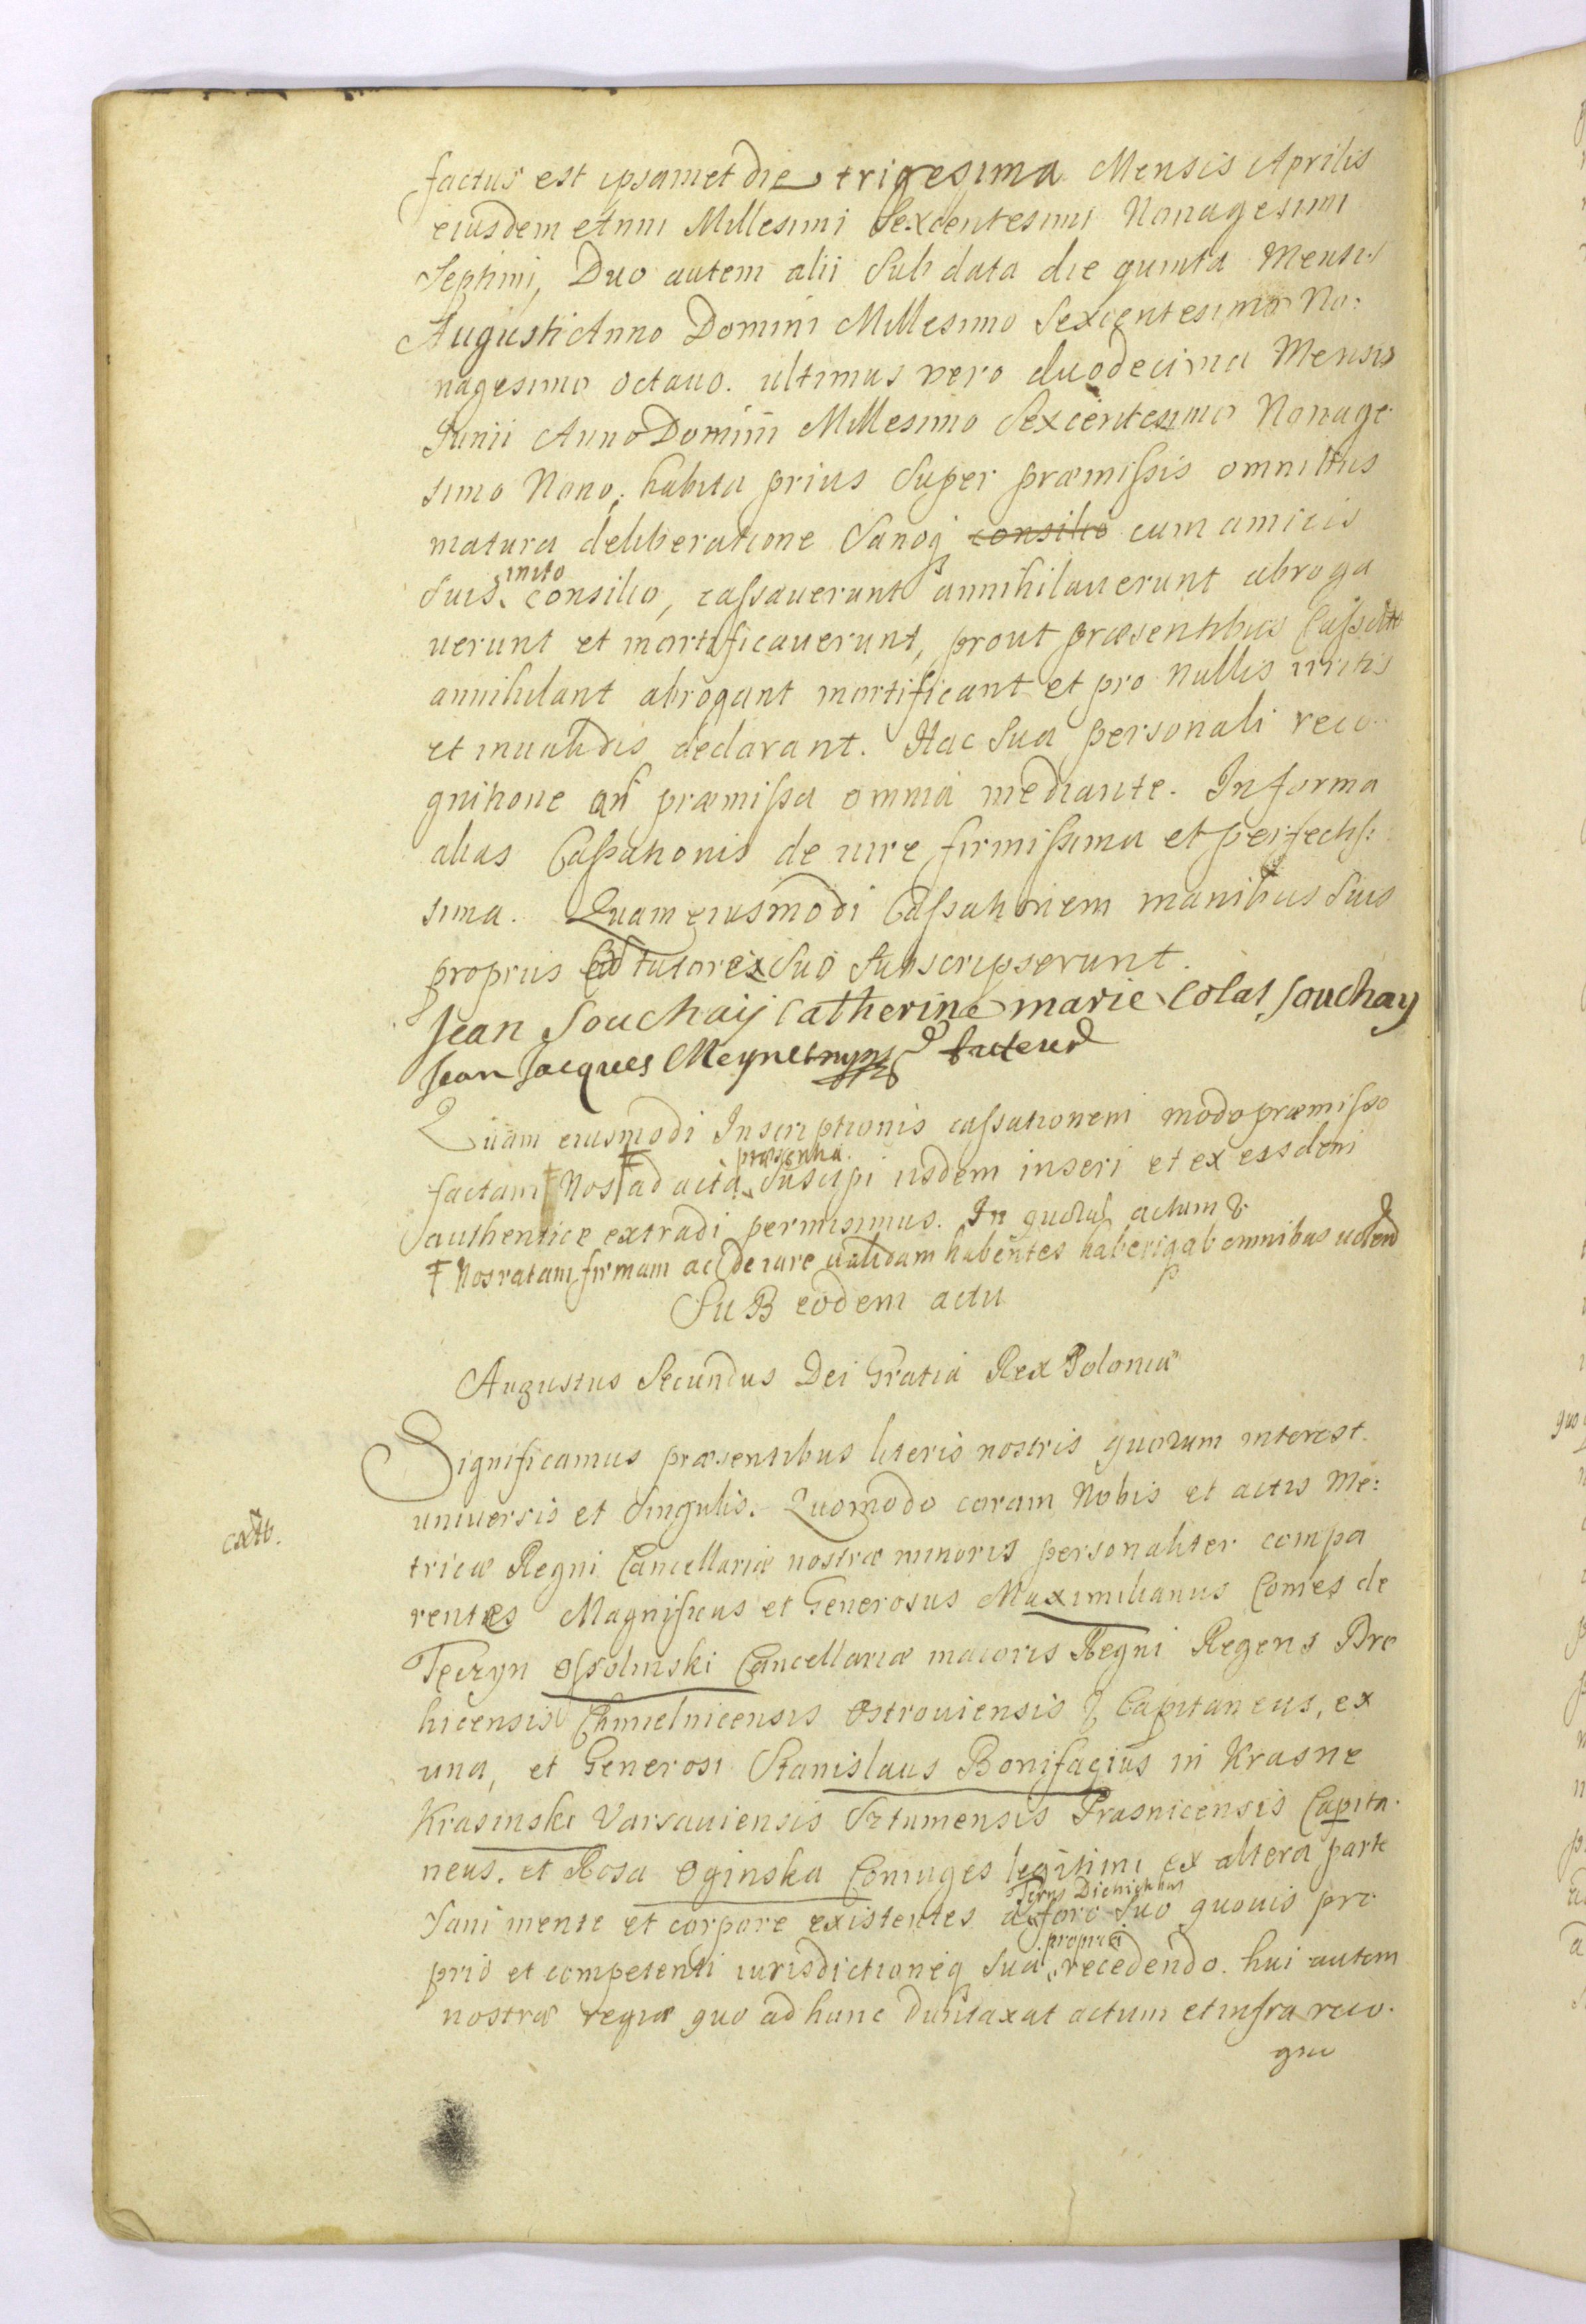 factus est ipsamet die trigesima Mensis Aprilis
eiusdem Anni Millesimi Sexcentesimi Nonagesimi
Septimi, Duo autem alii sub data die quinta Mensis
Augusti Anno Domini Millesimo Sexcentesimo No:
nagesimo octauo. ultimus vero duodecima Mensis
Junii Anno Domini Millesimo Sexcentesimo Nonage
simo Nono, habita prius super præmissis omnibus
matura deliberatione Sanoq consilio cum amicis
inito
suis consilio, cassauerunt annihilauerunt abroga
uerunt et mortificauerunt, prout præsentibus Cassant
annihilant abrogant mortificant et pro nullis irritis
et inualidis declarant. Hac sua personali reco
gnitione ad præmissa omnia mediante. In forma
alias Cassationis de iure firmissima et perfectis
sima. Quam eiusmodi Cassationem manibus suis
propriis cum tutore suo subscripserunt.
Jean Souchaij Catherine marie Colas Souchay
Jean Jacques tuteur
Quam eiusmodi Inscriptionis cassationem modo præmisso
præsentia
factam Nos ad acta suscipi iisdem inseri et ex eisdem
authentice extradi permisimus. In quorum actum &
Ŧ Nos ratam firmam ac de iure ualidam habentes haberiq ab omnibus uolend
Sub eodem actu
Augustus Secundus Dei Gratia Rex Poloniæ
Significamus præsentibus literis nostris quorum interest.
uniuersis et singulis. Quomodo coram Nobis et actis Me:
cath.
tricæ Regni Cancellariæ nostræ minoris personaliter compa
rentes Magnificus et Generosus Maximilianus Comes de
Teczyn Ossolinski Cancellariæ maioris Regni Regens Dro
hicensis Chmielnicensis Ostrouiensis & Capitaneus, ex
una, et Generosi Stanislaus Bonifacius in Krasne
Krasinski Varsauiensis Sztumensis Prasnicensis Capita
neus. et Rosa Oginska Coniuges legitimi ex altera parte
Terris
Sani mente et corpore existentes a foro suo quouis pro
propria
prio et competenti iurisdictioneq sua recedendo. hui autem
nostræ regiæ quo ad hunc duntaxat actum et infra reco
gni